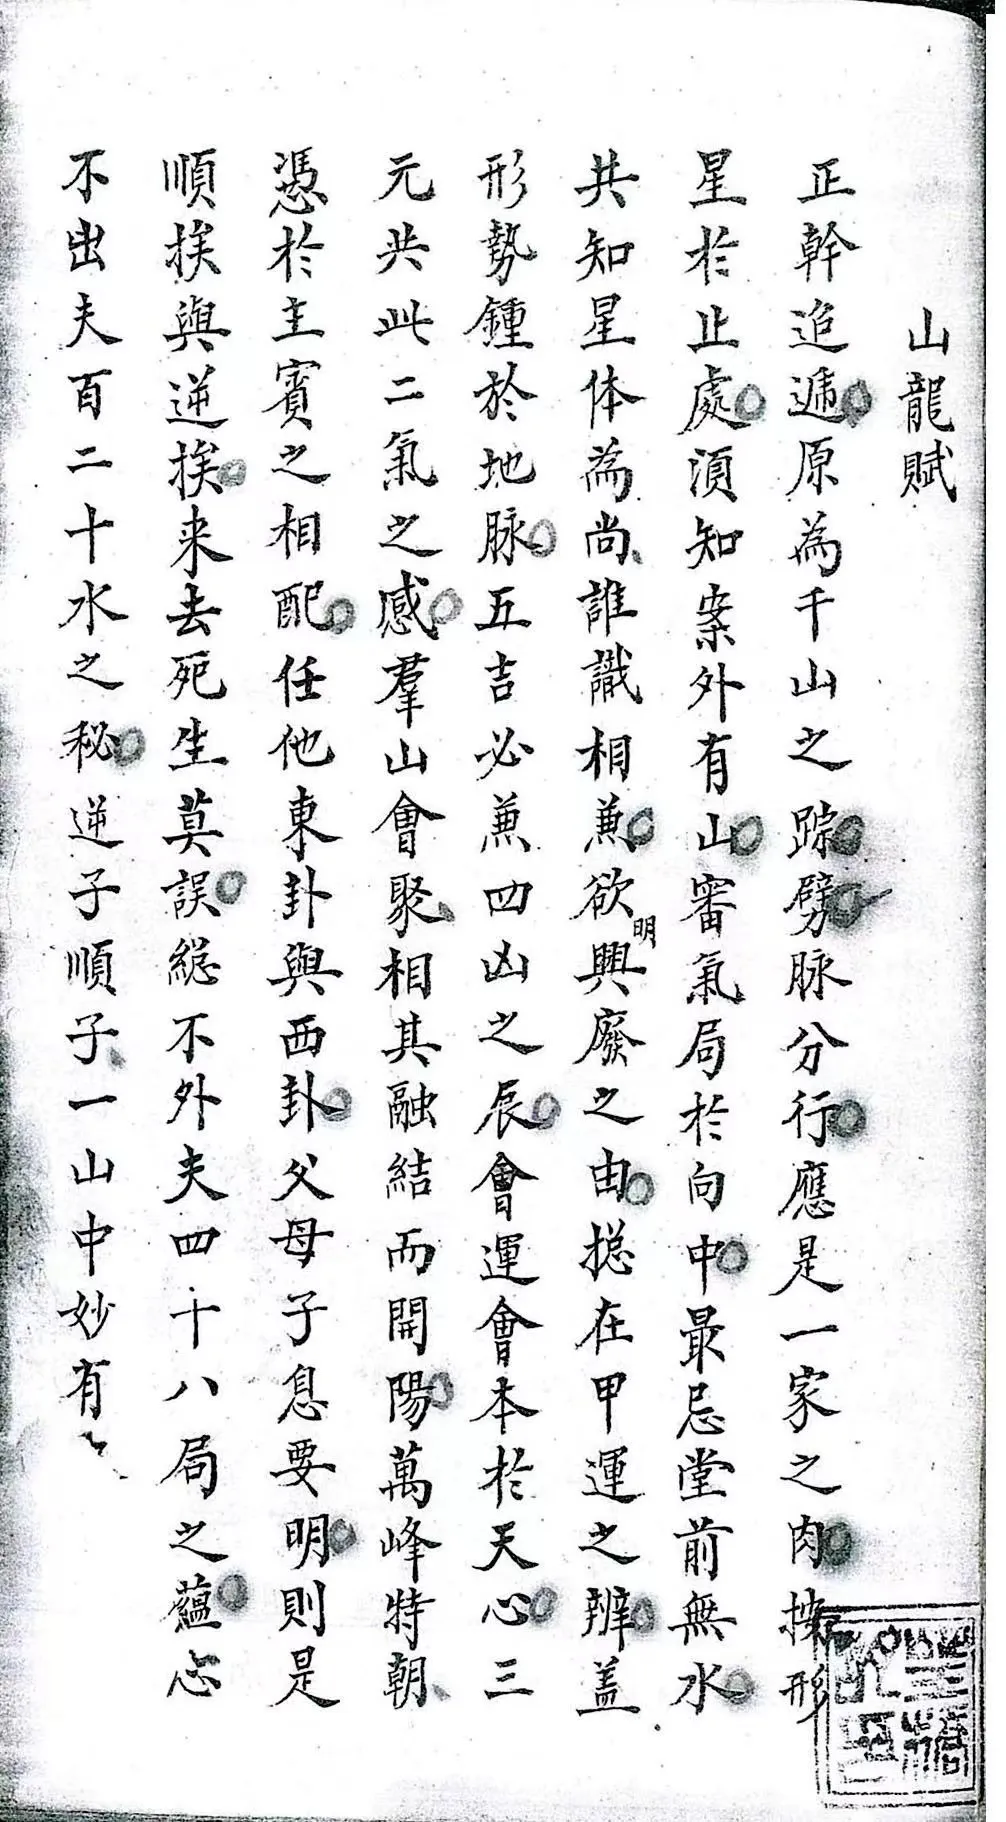 山龍賦
正幹迢遞原為千山之踪劈脉分行應是一家之肉按形
星於止處湏知案外有山審氣局於向中最忌堂前無水
共知星体為尚誰識相兼欲明興廢之由揔在甲運之辨盖
形勢鍾於地脉五吉必兼四凶之辰會運會本於天心三
元共此二氣之感羣山會聚相其融結而開陽萬峰特朝
憑於主賓之相配任他東卦與西卦父母子息要明則是
順挨與逆挨来去死生莫誤総不外夫四十八局之蘊
不出夫百二十水之秘逆子順子一山中妙有